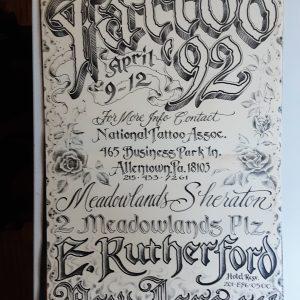 Tattoo
April '92
9-12
For More Info Contact
National Tattoo Assoc.
465 Business Park Ln.
Allentown Pa. 18103
215-433-7261
Meadowlands Sheraton
2 Meadowlands Plz.
E. Rutherford
Hotel Resv
201-896-0500
New Jersey